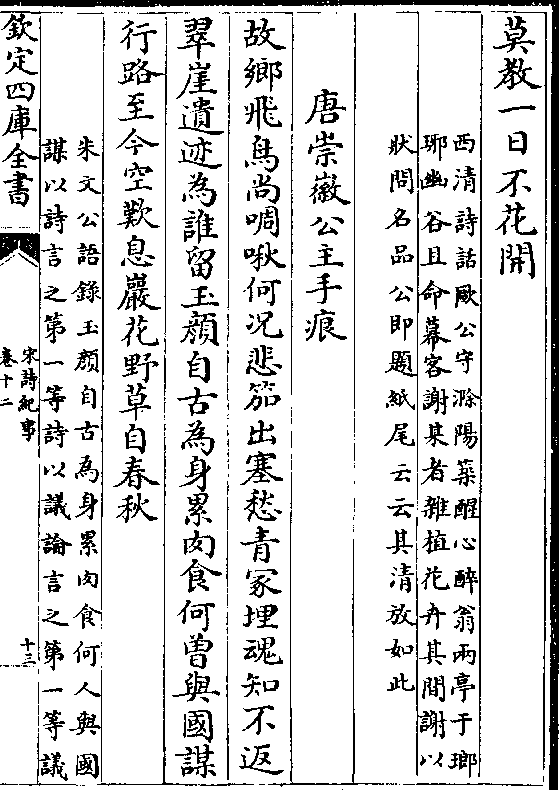 莫教一日不花開
西清詩話歐公守滁陽築醒心醉翁兩亭于瑯
琊幽谷且命幕客謝某者雜植花卉其間謝以
狀問名品公即題紙尾云云其清放如此
唐崇徽公主手痕
故鄉飛鳥尚啁啾何況悲笳出塞愁青冢埋魂知不返
翠崖遺迹為誰留玉顏自古為身累肉食何曾與國謀
行路至今空歎息巖花野草自春秋
朱文公語錄玉顏自古為身累肉食何人與國
謀以詩言之第一等詩以議論言之第一等議
欽定四庫全書
宋詩紀事
卷十二
十三